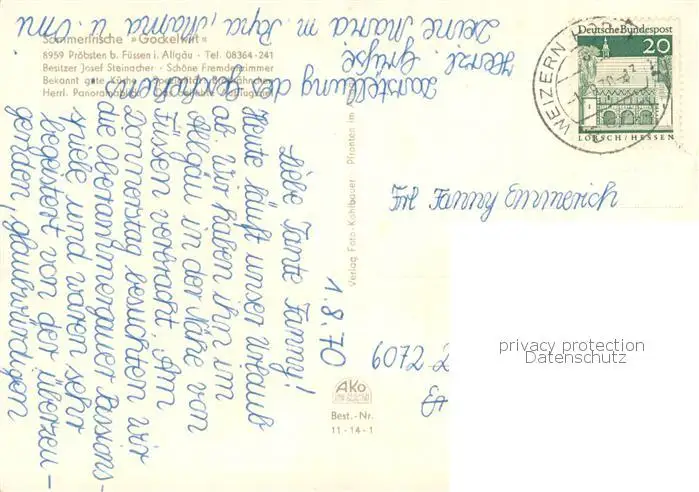 Sommerfrische »Gockelwirt«
8959 Pröbsten b. Füssen i. Allgäu - Tel. 08364-241
Besitzer Josef Steinacher - Schöne Fremdenzimmer
Bekannt gute Küche
Herrl. Panoramablick
1.8.70
Liebe Tante Fanny!
Heute läuft unser Urlaub
ab. Wir haben ihn im
Allgäu in der Nähe von
Füssen verbracht. Am
Donnerstag besuchten wir
die Oberammergauer Passions-
spiele und waren sehr
begeistert von der überzeu-
genden, glaubwürdigen
Darstellung der
Herzl. Grüße
Deine Maria m. Papa, Mama u.
Verlag Foto-Kohlbauer Pfronten im
AKO
Best.-Nr.
11-14-1
Deutsche Bundespost
20
LORSCH/HESSEN
WEIZERN-HOPF
Frl Fanny Emmerich
6072-2
privacy protection
Datenschutz